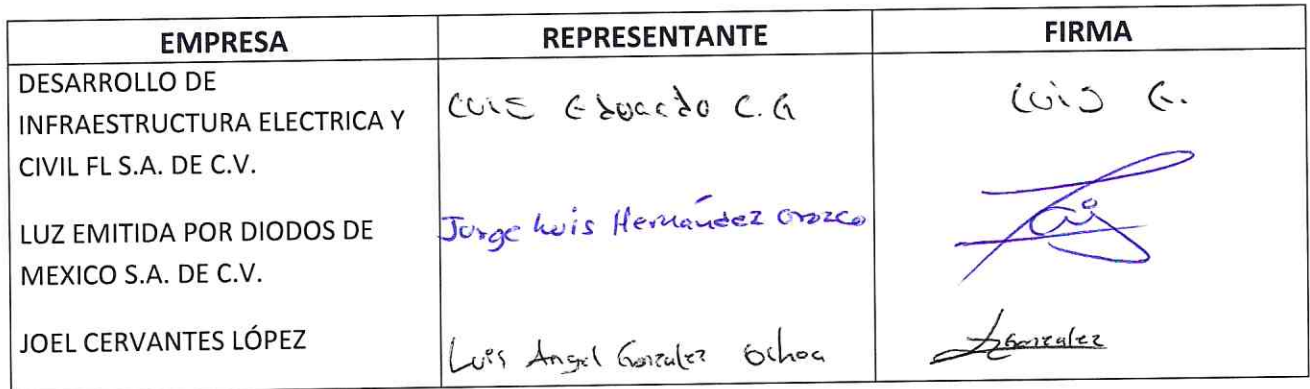 EMPRESA REPRESENTANTE FIRMA
DESARROLLO DE
INFRAESTRUCTURA ELECTRICA Y
CIVIL FL S.A. DE C.V.
Luis Eduardo C. G
Luis G.
LUZ EMITIDA POR DIODOS DE
MEXICO S.A. DE C.V.
Jorge Luis Hernández Orozco
JOEL CERVANTES LÓPEZ
Luis Angel Gonzalez Ochoa
LGonzalez